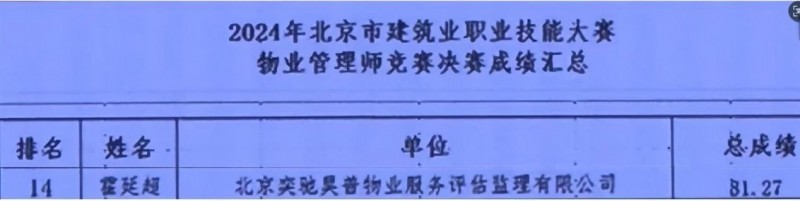 2024年北京市建筑业职业技能大赛
物业管理师竞赛决赛成绩汇总
排名 姓名 单位 总成绩
14 霍廷超 北京奕驰昊普物业服务评估监理有限公司 81.27